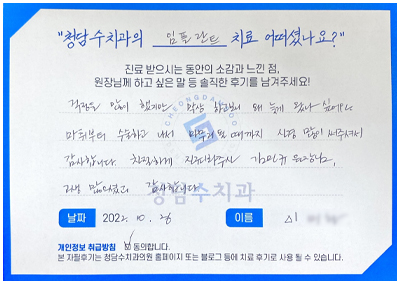 "청담수치과의 임플란트 치료 어떠셨나요?"
진료 받으시는 동안의 소감과 느낀 점,
원장님께 하고 싶은 말 등 솔직한 후기를 남겨주세요!
걱정도 많이 했지만 막상 하면서 왜 늦게 왔나 싶어요
마취부터 수술하고 나서 마무리 될 때까지 신경 많이 써주셔서
감사합니다. 친절하게 진료해주신 원장님,
고생 많으셨고 감사합니다.
CHEONGDAM
청담수치과
날짜 2022. 10. 26 이름
개인정보 취급방침 동의합니다.
본 자필후기는 청담수치과의원 홈페이지 또는 블로그 등에 치료 후기로 사용 될 수 있습니다.